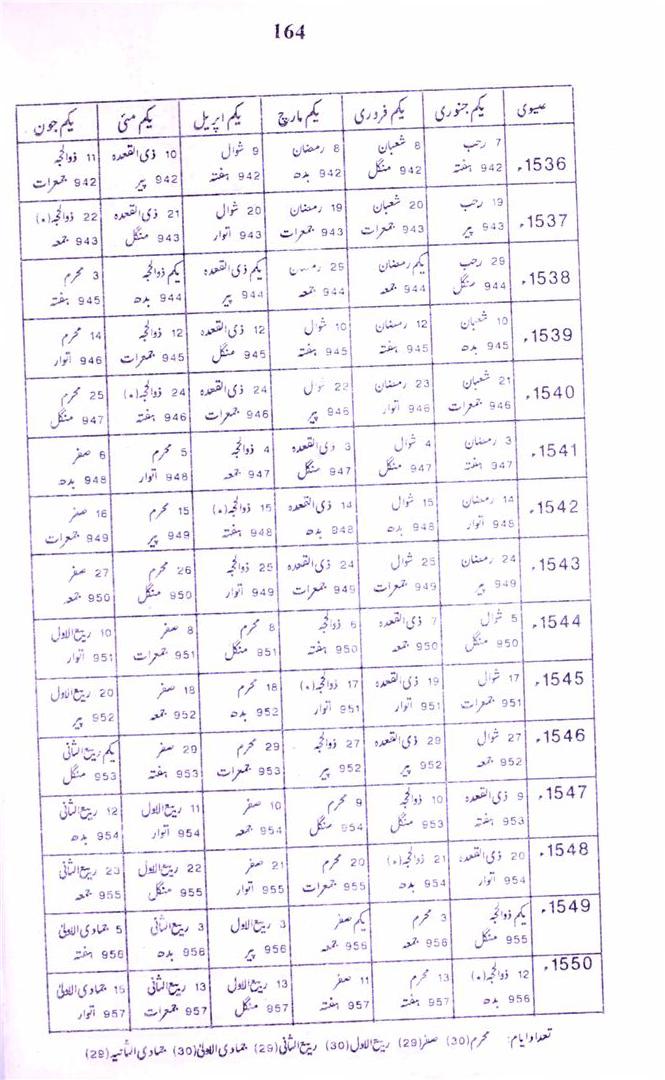 164
عیسوی یکم جنوری یکم فروری یکم مارچ یکم اپریل یکم مئی یکم جون
1536ء 7 رجب 8 شعبان 8 رمضان 9 شوال 10 ذی القعدہ 11 ذوالحجہ
942 ہفتہ 942 منگل 942 بدھ 942 ہفتہ 942 پیر 942 جمعرات
1537ء 19 رجب 20 شعبان 19 رمضان 20 شوال 21 ذی القعدہ 22 ذوالحجہ (٭)
943 پیر 943 جمعرات 943 جمعرات 943 اتوار 943 منگل 943 جمعہ
1538ء 29 رجب یکم رمضان 29 رمضان یکم ذی القعدہ یکم ذوالحجہ 3 محرم
944 منگل 944 جمعہ 944 جمعہ 944 پیر 944 بدھ 945 ہفتہ
1539ء 10 شعبان 12 رمضان 10 شوال 12 ذی القعدہ 12 ذوالحجہ 14 محرم
945 بدھ 945 ہفتہ 945 ہفتہ 945 منگل 945 جمعرات 946 اتوار
1540ء 21 شعبان 23 رمضان 22 شوال 24 ذی القعدہ 24 ذوالحجہ (٭) 25 محرم
946 جمعرات 946 اتوار 946 پیر 946 جمعرات 946 ہفتہ 947 منگل
1541ء 3 رمضان 4 شوال 3 ذی القعدہ 4 ذوالحجہ 5 محرم 6 صفر
947 ہفتہ 947 منگل 947 منگل 947 جمعہ 948 اتوار 948 بدھ
1542ء 14 رمضان 15 شوال 14 ذی القعدہ 15 ذوالحجہ (٭) 15 محرم 16 صفر
948 اتوار 948 بدھ 948 بدھ 948 ہفتہ 949 پیر 949 جمعرات
1543ء 24 رمضان 25 شوال 24 ذی القعدہ 25 ذوالحجہ 26 محرم 27 صفر
949 پیر 949 جمعرات 949 جمعرات 949 اتوار 950 منگل 950 جمعہ
1544ء 5 شوال 7 ذی القعدہ 6 ذوالحجہ 8 محرم 8 صفر 10 ربیع الاول
950 منگل 950 جمعہ 950 ہفتہ 951 منگل 951 جمعرات 951 اتوار
1545ء 17 شوال 19 ذی القعدہ 17 ذوالحجہ (٭) 18 محرم 18 صفر 20 ربیع الاول
951 جمعرات 951 اتوار 951 اتوار 952 بدھ 952 جمعہ 952 پیر
1546ء 27 شوال 29 ذی القعدہ 27 ذوالحجہ 29 محرم 29 صفر یکم ربیع الثانی
952 جمعہ 952 پیر 952 پیر 953 جمعرات 953 ہفتہ 953 منگل
1547ء 9 ذی القعدہ 10 ذوالحجہ 9 محرم 10 صفر 11 ربیع الاول 12 ربیع الثانی
953 ہفتہ 953 منگل 954 منگل 954 جمعہ 954 اتوار 954 بدھ
1548ء 20 ذی القعدہ 21 ذوالحجہ (٭) 20 محرم 21 صفر 22 ربیع الاول 23 ربیع الثانی
954 اتوار 954 بدھ 955 جمعرات 955 اتوار 955 منگل 955 جمعہ
1549ء یکم ذوالحجہ 3 محرم یکم صفر 3 ربیع الاول 3 ربیع الثانی 5 جمادی الاولیٰ
955 منگل 956 جمعہ 956 جمعہ 956 پیر 956 بدھ 956 ہفتہ
1550ء 12 ذوالحجہ (٭) 13 محرم 11 صفر 13 ربیع الاول 13 ربیع الثانی 15 جمادی الاولیٰ
956 بدھ 957 ہفتہ 957 ہفتہ 957 منگل 957 جمعرات 957 اتوار
تعداد ایام: محرم (30) صفر (29) ربیع الاول (30) ربیع الثانی (29) جمادی الاولیٰ (30) جمادی الثانیہ (29)